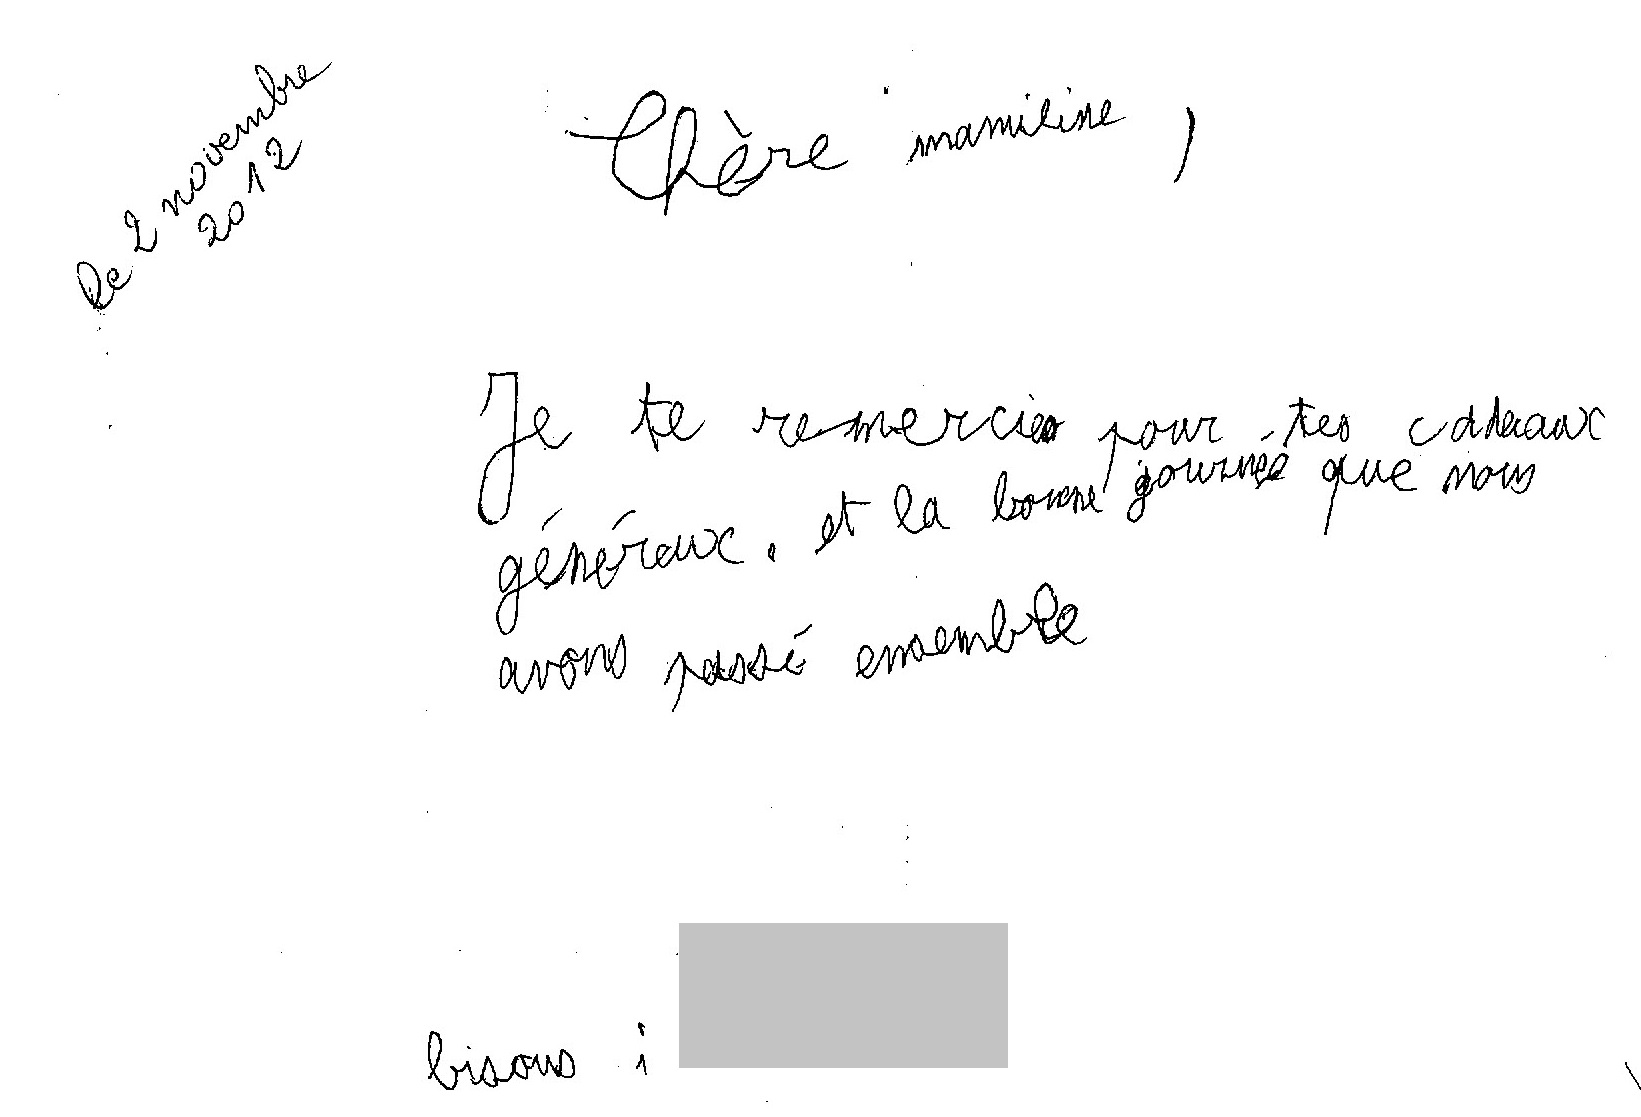 le 2 novembre
2012
Chère mamiline,
Je te remercie pour tes cadeaux
généraux. et la bonne journée que nous
avons passé ensemble
bisous :